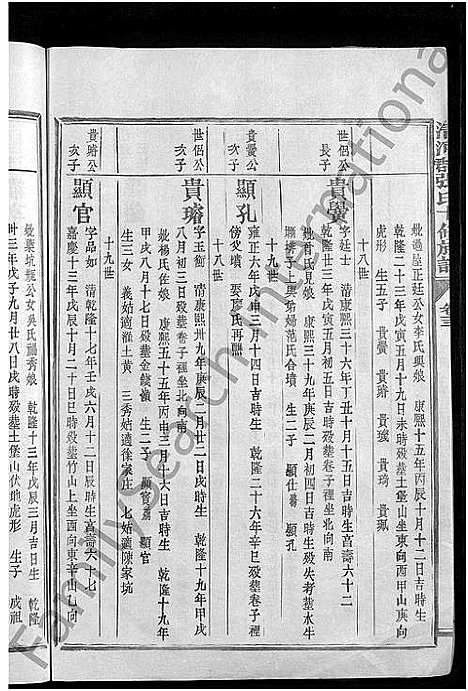 清河郡張氏十修族譜 卷三
娶過屋正廷公女李氏興娘 康熙十五年丙辰十月十二日辰時生
乾隆二十三年戊寅五月十九日未時歿葬土堡山坐東向西甲山庚向
虎形 生五子 貴 貴瑢 貴 貴琦 貴珮
十八世
世侶公長子
貴黌
字廷士 清康熙三十六年丁丑十月十五日吉時生高壽六十二
乾隆廿三年戊寅五月初八日吉時歿葬卷子裡坐北向南
娶曾氏見娘 康熙三十九年庚辰二月初四日吉時生歿失考葬水牛
欄排子上與弟婦范氏合墳 生二子 顯仕 顯孔
十九世
貴黌公次子
顯孔
雍正六年三月十四日吉時生 乾隆二十六年辛巳歿葬卷子裡
傍父墳 娶廖氏再醮
十八世
世侶公次子
貴瑢
字玉衡 清康熙卅九年庚辰二月廿二日戌時生 乾隆十九年甲戌
八月初三日歿葬卷子裡坐北向南
娶楊氏佐娘 康熙五十五年丙申三月十六日吉時生 乾隆十九年
甲戌八月十七日歿葬金 生二子 顯賓 顯官
生三女 義姑適淮土黃 三秀姑適徐家庄 七姑適陳家坑
十九世
貴瑢公次子
顯官
字品如 清乾隆十七年壬戌六月十二日辰時生高壽六十七
嘉慶十三年戊辰十月二十日巳時歿葬竹山上坐西向東辛山乙向
娶葉坑 公女吳氏福秀娘 乾隆十三年戊辰三月吉日生 乾隆
卅三年戊子九月廿八日戌時歿葬土堡山伏地虎形 生子 成祖